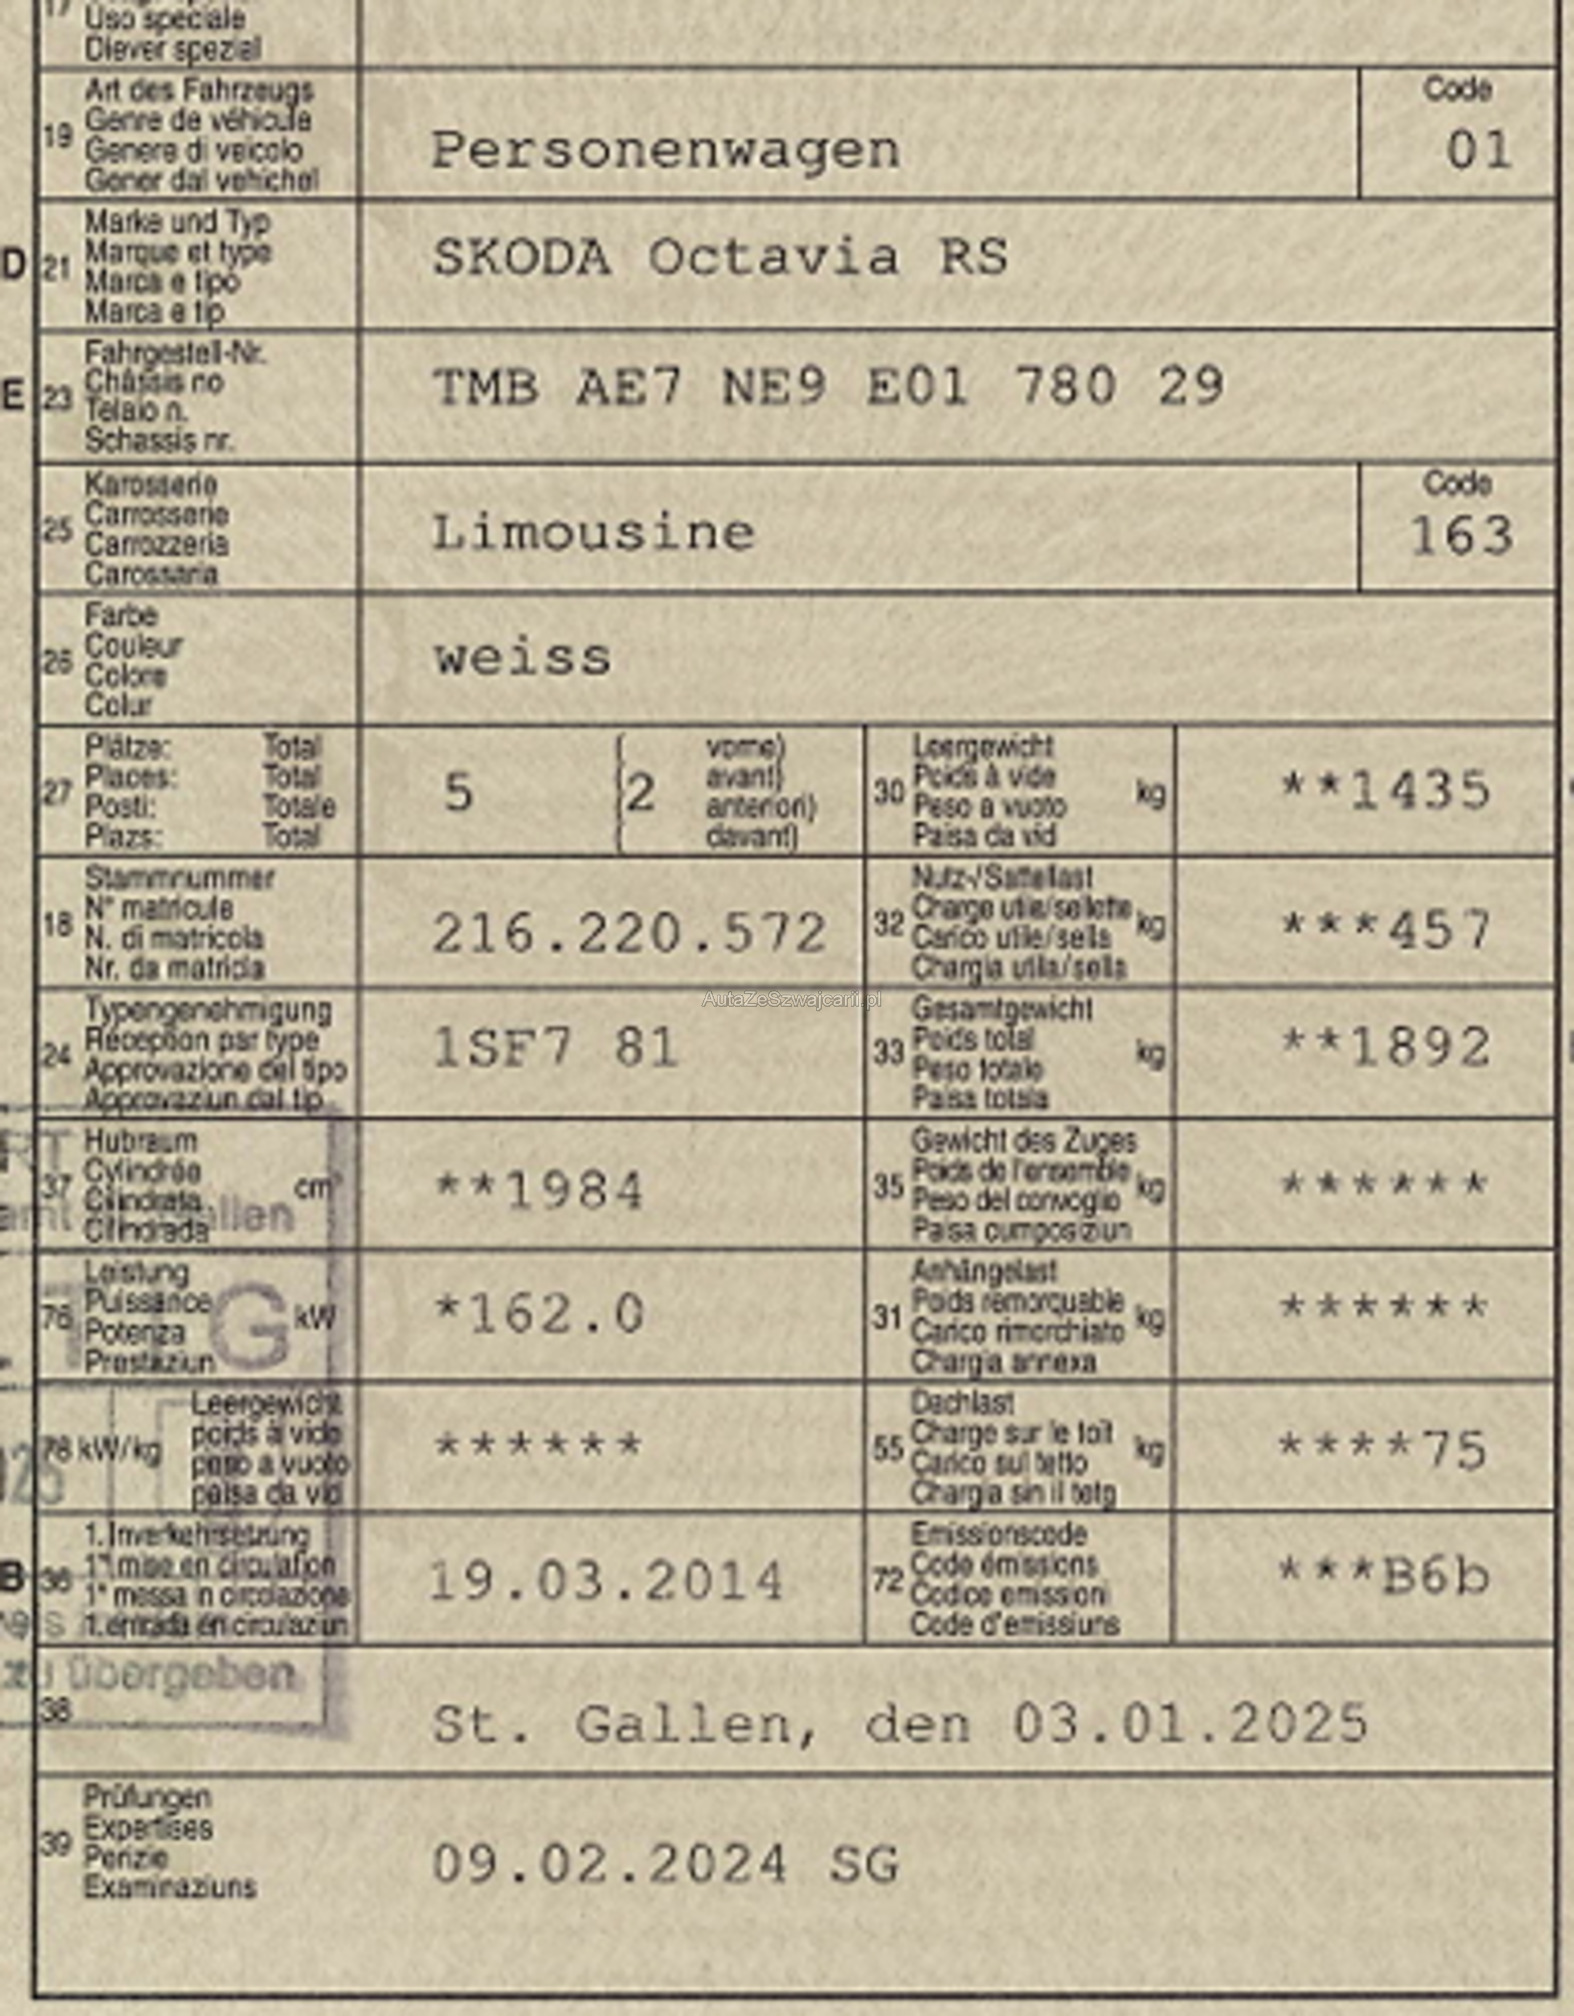 17
Uso speciale
Diever spezial
19 Art des Fahrzeugs
Genre de véhicule
Genere di veicolo
Gener dal vehichel
Personenwagen
Code
01
D 21 Marke und Typ
Marque et type
Marca e tipo
Marca e tip
SKODA Octavia RS
E 23 Fahrgestell-Nr.
Châssis no
Telaio n.
Schassis nr.
TMB AE7 NE9 E01 780 29
25 Karosserie
Carrosserie
Carrozzeria
Carossaria
Limousine
Code
163
26 Farbe
Couleur
Colore
Colur
weiss
27 Plätze: Total
Places: Total
Posti: Totale
Plazs: Total
5 (2 vorne)
avant)
anteriori)
davant)
30 Leergewicht
Poids à vide
Peso a vuoto
Paisa da vid
kg
**1435
18 Stammnummer
N° matricule
N. di matricola
Nr. da matricla
216.220.572
32 Nutz-/Sattellast
Charge utile/sellette
Carico utile/sella
Chargia utila/sella
kg
***457
24 Typengenehmigung
Réception par type
Approvazione del tipo
Approvaziun dal tip
1SF7 81
AutaZeSzwajcarii.pl
33 Gesamtgewicht
Poids total
Peso totale
Paisa totala
kg
**1892
37 Hubraum
Cylindrée
Cilindrata
Cilindrada
cm³
**1984
35 Gewicht des Zuges
Poids de l'ensemble
Peso del convoglio
Paisa cumposiziun
kg
******
76 Leistung
Puissance
Potenza
Prestaziun
kW
*162.0
31 Anhängelast
Poids remorquable
Carico rimorchiato
Chargia annexa
kg
******
78 kW/kg
Leergewicht
poids à vide
peso a vuoto
paisa da vid
******
55 Dachlast
Charge sur le toit
Carico sul tetto
Chargia sin il tetg
kg
****75
B 36 1. Inverkehrsetzung
1re mise en circulation
1a messa in circolazione
1. entrada en circulaziun
19.03.2014
72 Emissionscode
Code émissions
Codice emissioni
Code d'emissiuns
***B6b
zu übergeben
38
St. Gallen, den 03.01.2025
39 Prüfungen
Expertises
Perizie
Examinaziuns
09.02.2024 SG